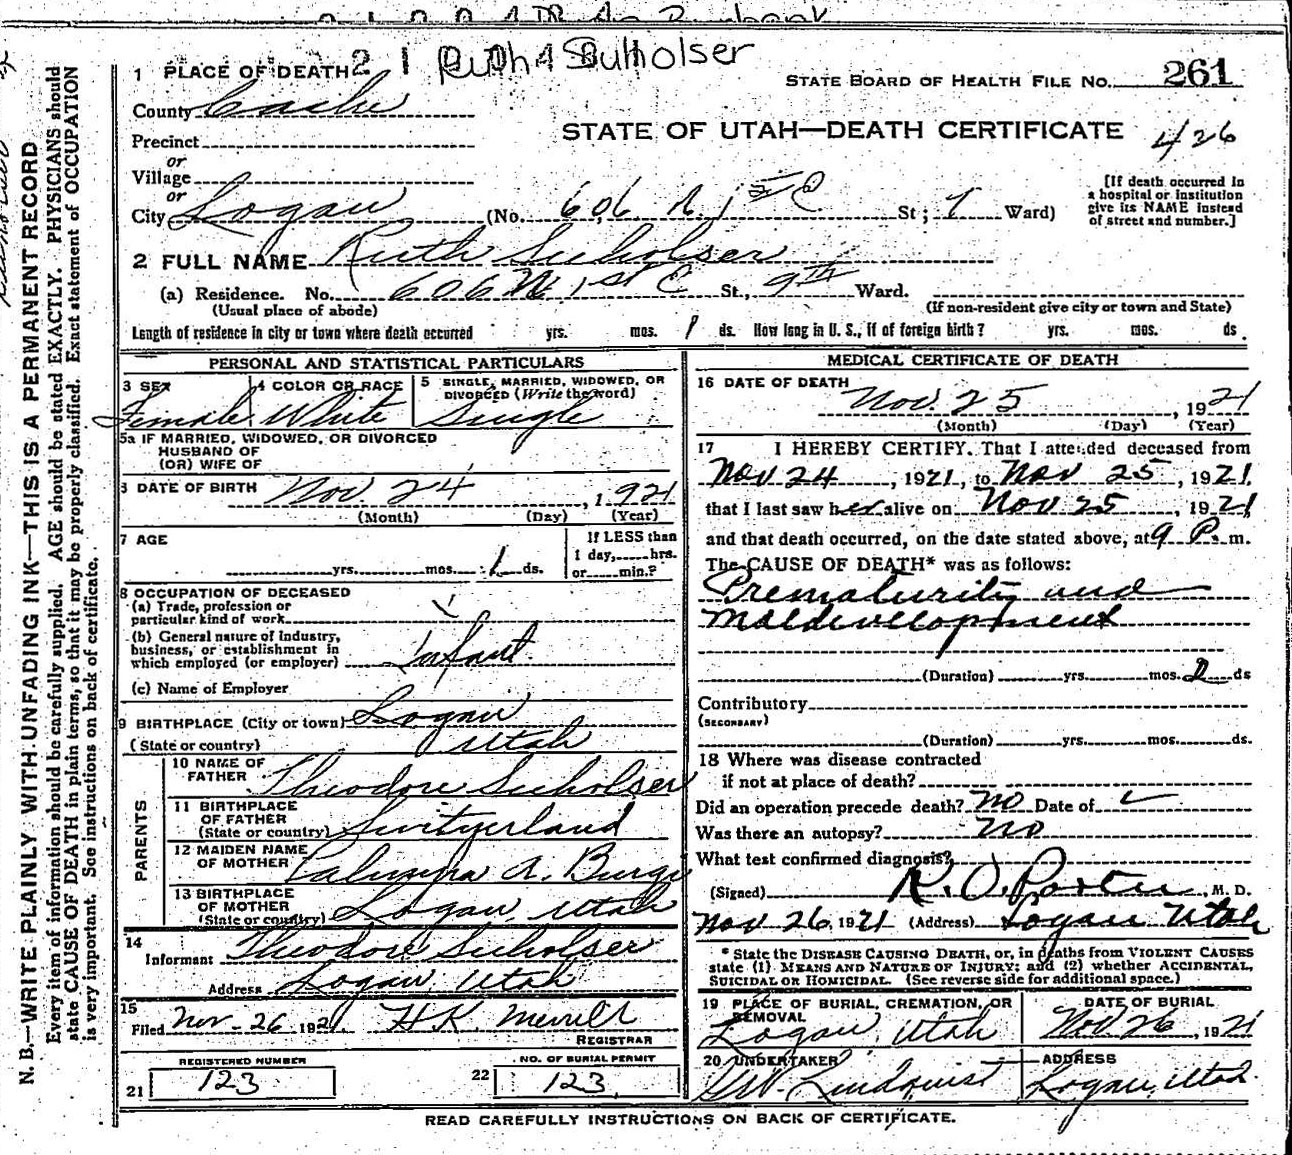 Ruth Sulholser
1 PLACE OF DEATH 2 1
STATE BOARD OF HEALTH FILE NO. 261
County Cache
STATE OF UTAH—DEATH CERTIFICATE 426
Precinct
or
Village
or
City Logan (No. 606 N 1st E St; 7 Ward)
[If death occurred in
a hospital or institution
give its NAME instead
of street and number.]
2 FULL NAME Ruth Sulholser
(a) Residence. No. 606 N 1st E St., 9th Ward.
(Usual place of abode) (If non-resident give city or town and State)
Length of residence in city or town where death occurred yrs. mos. 1 ds. How long in U. S., if of foreign birth? yrs. mos. ds.
PERSONAL AND STATISTICAL PARTICULARS
3 SEX 4 COLOR OR RACE 5 SINGLE, MARRIED, WIDOWED, OR
DIVORCED (Write the word)
Female White Single
5a IF MARRIED, WIDOWED, OR DIVORCED
HUSBAND OF
(OR) WIFE OF
6 DATE OF BIRTH Nov. 24, 1921
(Month) (Day) (Year)
7 AGE If LESS than
1 day,......hrs.
yrs. mos. 1 ds. or......min.?
8 OCCUPATION OF DECEASED
(a) Trade, profession or
particular kind of work
(b) General nature of industry,
business, or establishment in
which employed (or employer) Infant
(c) Name of Employer
9 BIRTHPLACE (City or town) Logan
(State or country) Utah
PARENTS
10 NAME OF
FATHER Theodore Sulholser
11 BIRTHPLACE
OF FATHER
(State or country) Switzerland
12 MAIDEN NAME
OF MOTHER A. Burgi
13 BIRTHPLACE
OF MOTHER
(State or country) Logan, Utah
14
Informant Theodore Sulholser
Address Logan Utah
15
Filed Nov-26 1921 H.K. Merrill
REGISTRAR
REGISTERED NUMBER NO. OF BURIAL PERMIT
21 123 22 123
MEDICAL CERTIFICATE OF DEATH
16 DATE OF DEATH
Nov. 25, 1921
(Month) (Day) (Year)
17 I HEREBY CERTIFY. That I attended deceased from
Nov 24, 1921, to Nov 25, 1921,
that I last saw her alive on Nov 25, 1921,
and that death occurred, on the date stated above, at 9 P. m.
The CAUSE OF DEATH* was as follows:
Prematurity and
Maldevelopment
(Duration) yrs. mos. 2 ds
Contributory
(SECONDARY)
(Duration) yrs. mos. ds.
18 Where was disease contracted
if not at place of death?
Did an operation precede death? No Date of
Was there an autopsy? No
What test confirmed diagnosis?
(Signed) R. O. Porter M. D.
Nov 26, 1921 (Address) Logan Utah
* State the DISEASE CAUSING DEATH, or, in deaths from VIOLENT CAUSES
state (1) MEANS AND NATURE OF INJURY; and (2) whether ACCIDENTAL,
SUICIDAL OR HOMICIDAL. (See reverse side for additional space.)
19 PLACE OF BURIAL, CREMATION, OR
REMOVAL
Logan, Utah
DATE OF BURIAL
Nov 26, 1921
20 UNDERTAKER
Lindquist
ADDRESS
Logan, Utah.
READ CAREFULLY INSTRUCTIONS ON BACK OF CERTIFICATE.
N. B.—WRITE PLAINLY WITH UNFADING INK—THIS IS A PERMANENT RECORD
Every item of information should be carefully supplied. AGE should be stated EXACTLY. PHYSICIANS should
state CAUSE OF DEATH in plain terms, so that it may be properly classified. Exact statement of OCCUPATION
is very important. See instructions on back of certificate.